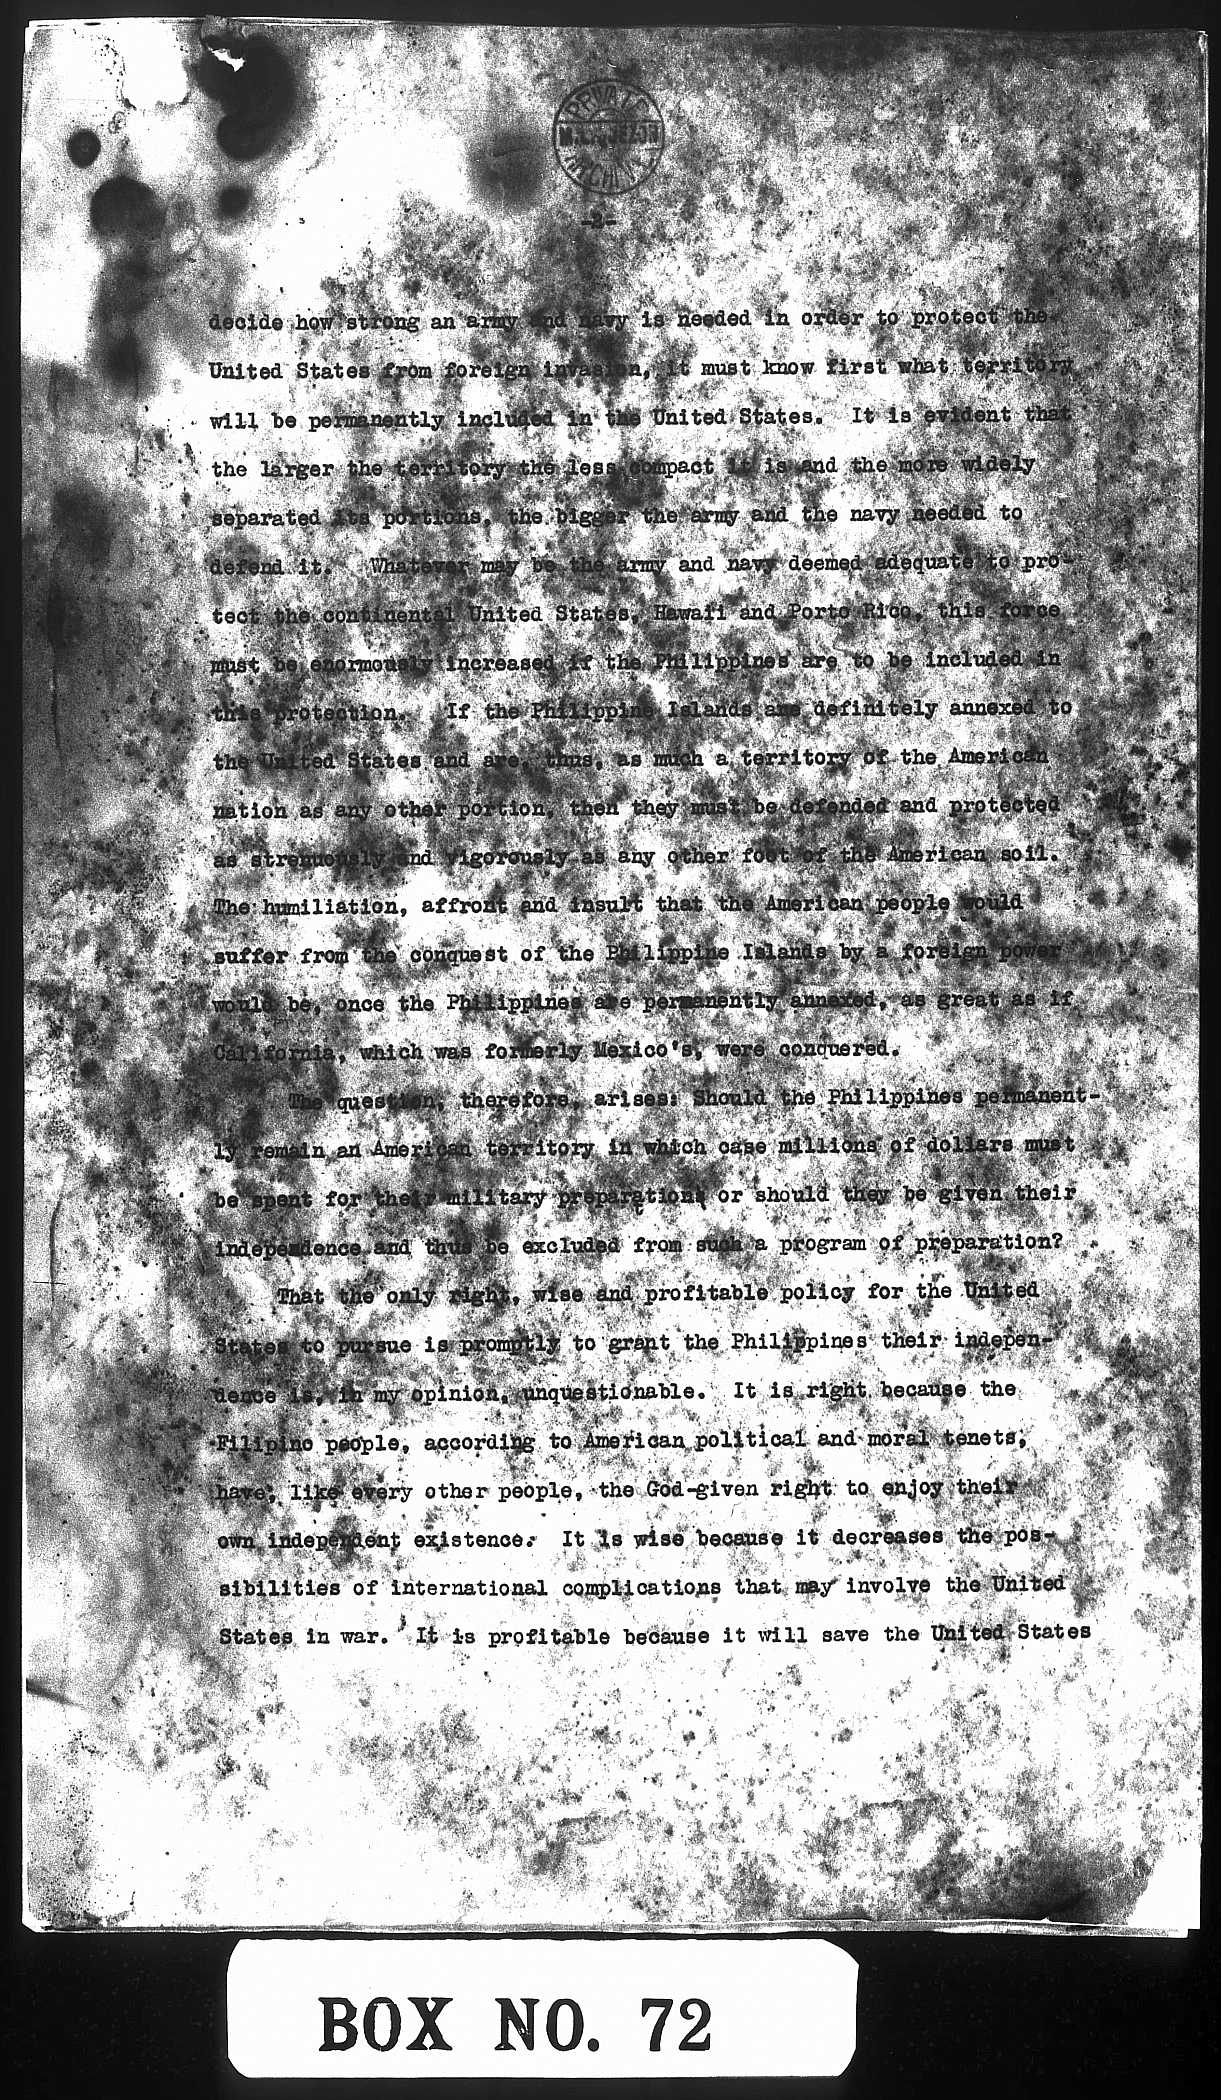 PRIVATE
M.L.QUEZON
ARCHIVE
-2-
decide how strong an army and navy is needed in order to protect the
United States from foreign invasion, it must know first what territory
will be permanently included in the United States. It is evident that
the larger the territory the less compact it is and the more widely
separated its portions, the bigger the army and the navy needed to
defend it. Whatever may be the army and navy deemed adequate to pro-
tect the continental United States, Hawaii and Porto Rico, this force
must be enormously increased if the Philippines are to be included in
this protection. If the Philippine Islands are definitely annexed to
the United States and are, thus, as much a territory of the American
nation as any other portion, then they must be defended and protected
as strenuously and vigorously as any other foot of the American soil.
The humiliation, affront and insult that the American people would
suffer from the conquest of the Philippine Islands by a foreign power
would be, once the Philippines are permanently annexed, as great as if
California, which was formerly Mexico's, were conquered.
The question, therefore, arises: Should the Philippines permanent-
ly remain an American territory in which case millions of dollars must
be spent for their military preparation, or should they be given their
independence and thus be excluded from such a program of preparation?
That the only right, wise and profitable policy for the United
States to pursue is promptly to grant the Philippines their indepen-
dence is, in my opinion, unquestionable. It is right because the
Filipino people, according to American political and moral tenets,
have, like every other people, the God-given right to enjoy their
own independent existence. It is wise because it decreases the pos-
sibilities of international complications that may involve the United
States in war. It is profitable because it will save the United States
BOX NO. 72